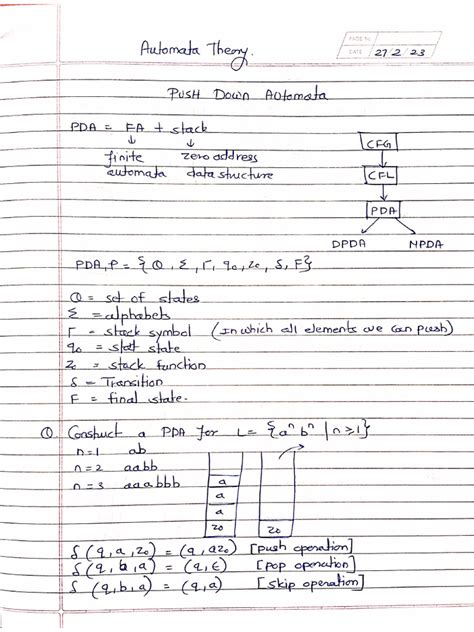 PAGE No.
DATE 27/2/23
Automata Theory.
PUSH DOWN AUTOMATA
PDA = FA + stack
↓ ↓
finite zero address
automata data structure
CFG
CFL
PDA
DPDA NPDA
PDA, P = {Q, Σ, Γ, q₀, z₀, δ, F}
Q = set of states
Σ = alphabets
Γ - stack symbol (In which all elements we can push)
q₀ = start state
z₀ = stack function
δ - Transition
F = final state.
Q Construct a PDA for L = {aⁿ bⁿ | n ≥ 1}
n=1 ab
n=2 aabb
n=3 aaabbb
a
a
a
z₀ z₀
δ (q, a, z₀) = (q, az₀) [push operation]
δ (q, b, a) = (q, ε) [pop operation]
δ (q, b, a) = (q, a) [skip operation]